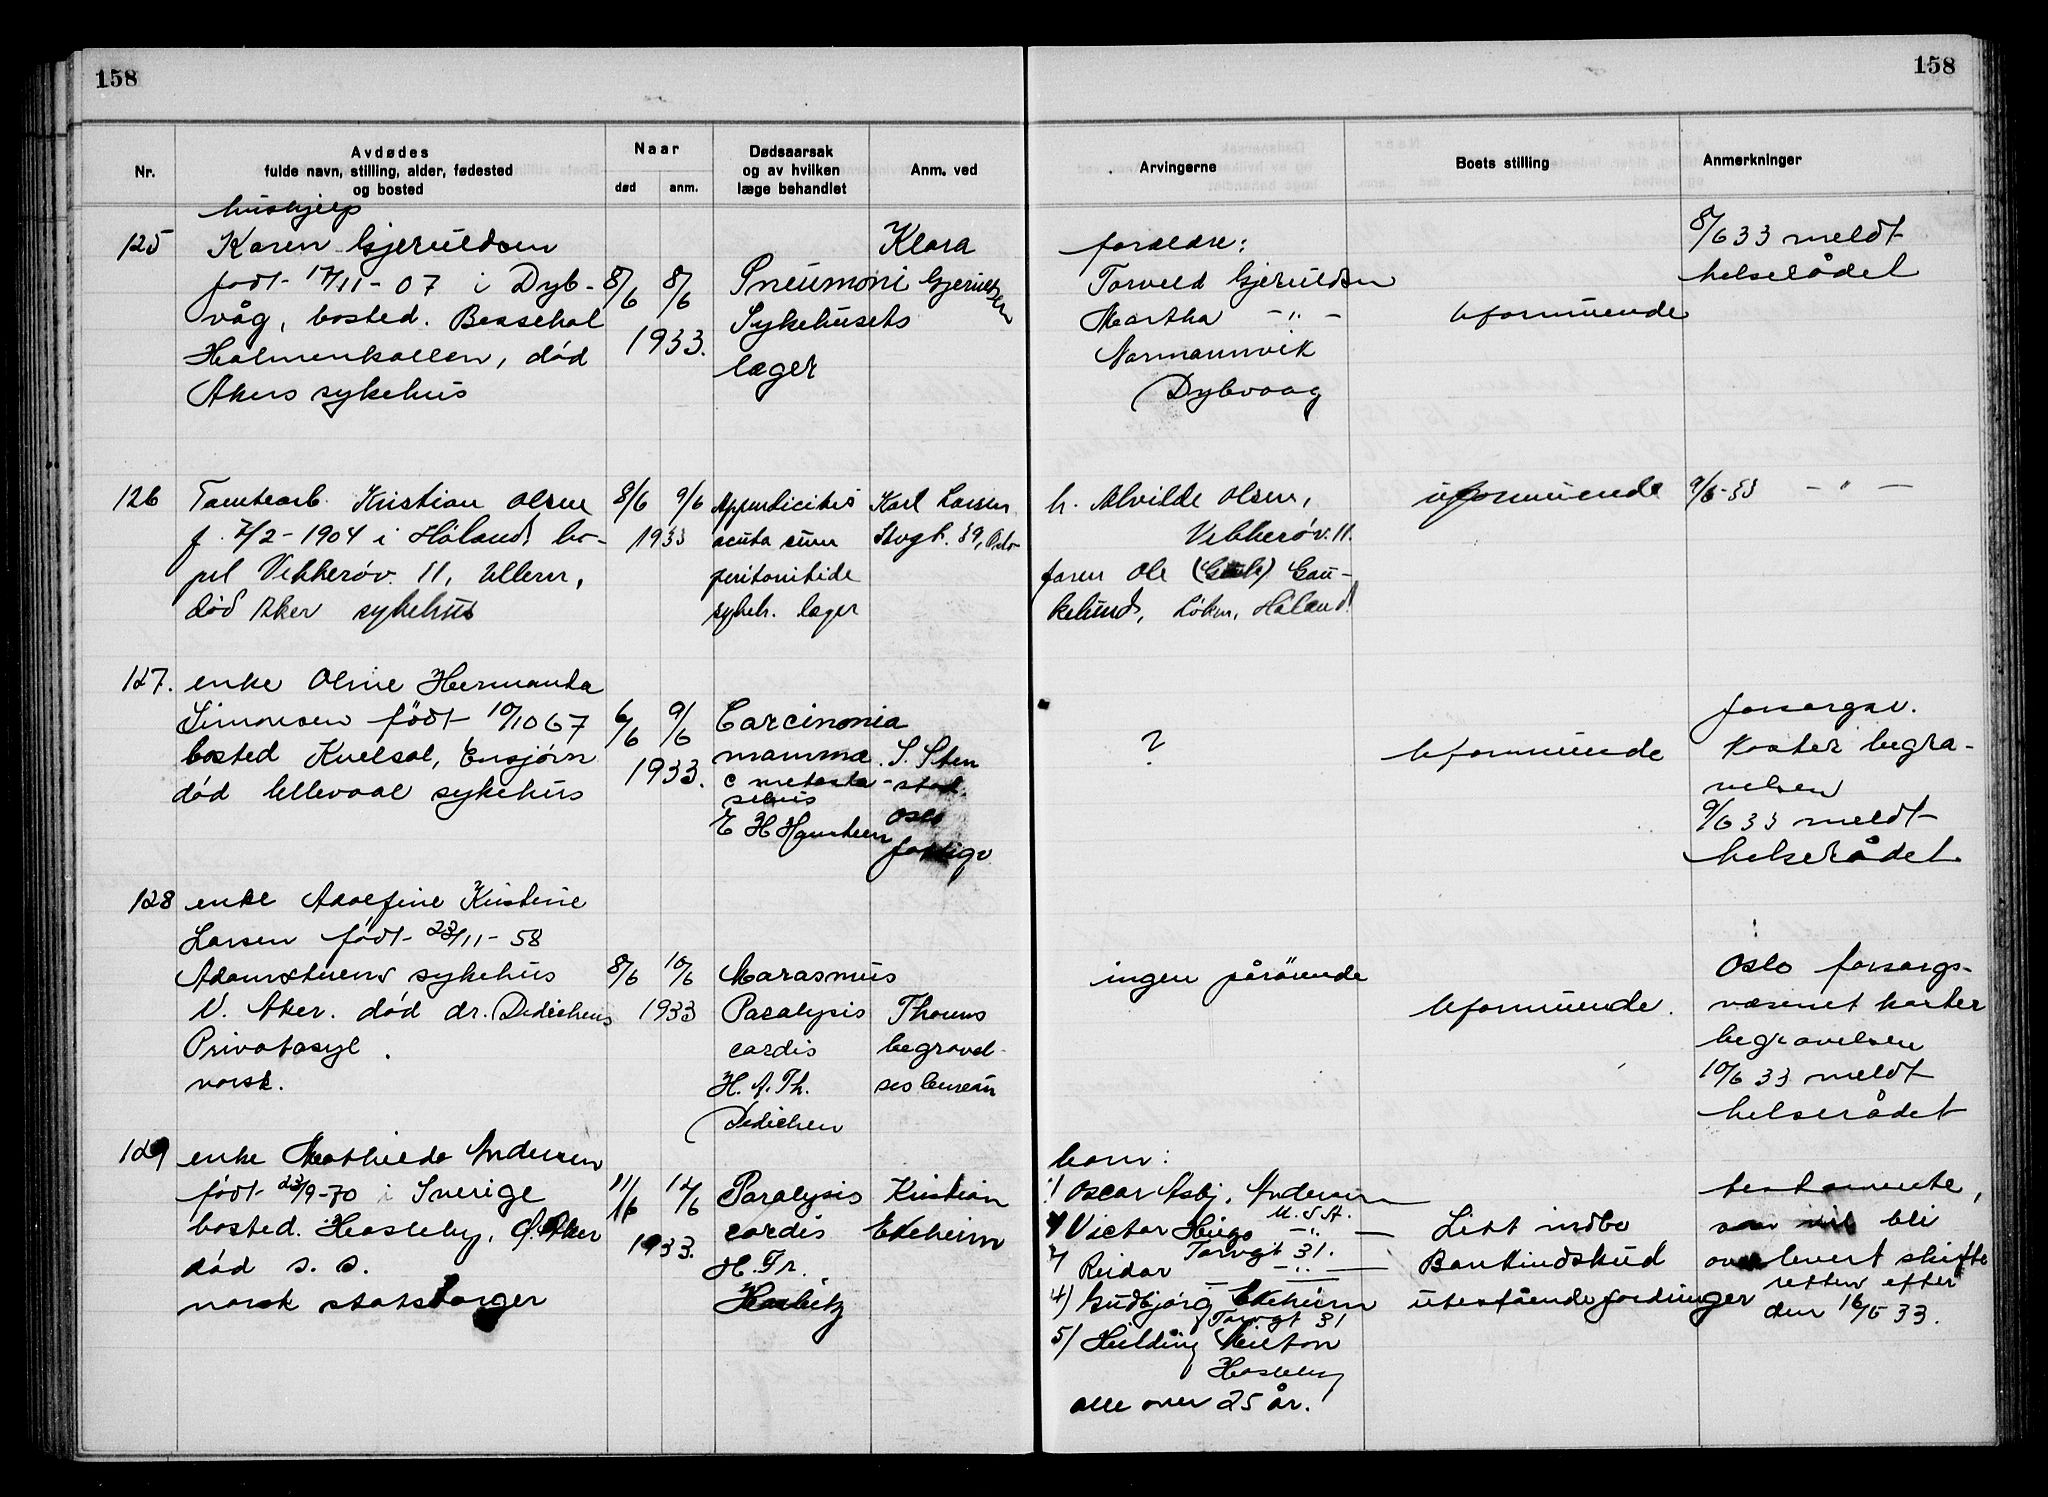 158
158
Nr.
Avdødes
fulde navn, stilling, alder, fødested
og bosted
Naar
død
anm.
Dødsaarsak
og av hvilken
læge behandlet
Anm. ved
Arvingerne
Boets stilling
Anmerkninger
hushjelp
125
Karen Gjeruldsen
født 17/11-07 i Dyb-
våg, bosted. Bessehal
Holmenkollen, död
Akers sykehus
8/6 8/6
1933.
Pneumoni
Sykehusets
læger
Klara
Gjeruldsen
foreldre:
Torveld Gjeruldsen
Martha -"-
Normannvik
Dybvaag
Uformuende
8/6 33 meldt
helserådet
126
Tomtearb. Kristian Olsen
f. 7/2-1904 i Höland, bo-
pel Vekkeröv. 11, Ullern,
död Aker sykehus
8/6 9/6
1933
Appendicitis
acuta cum
peritonitide
sykeh. læger
Karl Larsen
Stvgt. 39, Oslo
h. Alvilde Olsen,
Vekkeröv. 11.
faren Ole Gau-
kelund, Löken, Höland
uformuende
9/6-33 -"-
127.
enke Oline Hermanda
Simonsen födt 10/10 67
bosted Kvelsol, Ensjøvn
död Ullevaal sykehus
6/6 9/6
1933.
Carcinomia
mamma
c metasta-
sebus
E H Hansteen
S. Sten
stad
Oslo
fattigv
?
Uformuende
forsorgsv.
koster begra-
velsen
9/6 33 meldt
helserådet
128
enke Adolfine Kristine
Larsen födt 23/11-58
Adamstuens sykehus
V. Aker. död dr. Dedichens
Privatasyl.
norsk.
8/6 10/6
1933
Marasmus
Paralysis
cordis
H. A. Th.
Dedichen
Thorens
begravel-
sesbureau
ingen pårörende
Uformuende.
Oslo forsorgs-
væsenet koster
begravelsen
10/6 33 meldt
helserådet
129
enke Mathilde Andersen
født 23/9-70 i Sverige
bosted. Hasleby, Ö. Aker
död s. s.
norsk statsborger
11/6 14/6
1933.
Paralysis
cordis
H. Fr.
Kristian
Ekeheim
barn:
1/ Oscar Asbj. Andersen
U.S.A.
Victor Hugo -"-
Torvgt 31.
Reidar -"-
4) Gudbjörg Ekeheim
Torvgt 31
5) Hilding Milton
Hasleby
alle over 25 år.
Litt indbo
Bankindskud
utestående fordringer
testamente,
som vil bli
overlevert skifte
retten efter
den 16/6 33.